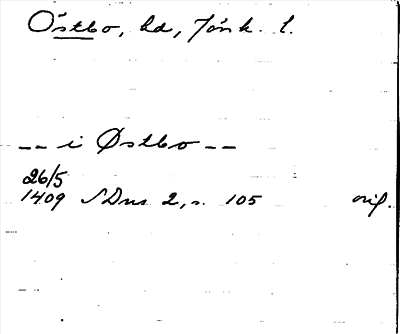 Östbo, hd, Jönk. l.
-- i Østbo --
26/5
1409 SDns 2, s. 105 orig.